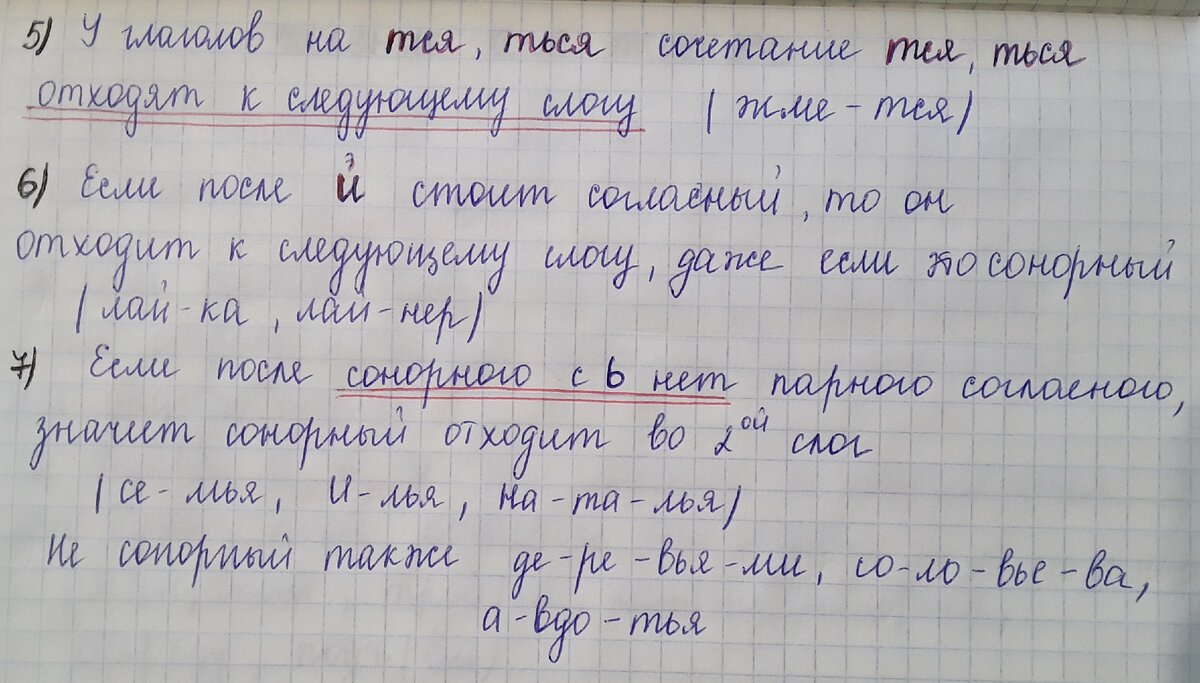 5) У глаголов на тся, ться сочетание тся, ться
отходят к следующему слогу (жме-тся)
6) Если после й стоит согласный, то он
отходит к следующему слогу, даже если это сонорный
(лай-ка, лай-нер)
7) Если после сонорного с ь нет парного согласного,
значит сонорный отходит во 2ой слог
(се-мья, И-лья, На-та-лья)
Не сонорный также де-ре-вья-ми, со-ло-вье-ва,
а-вдо-тья